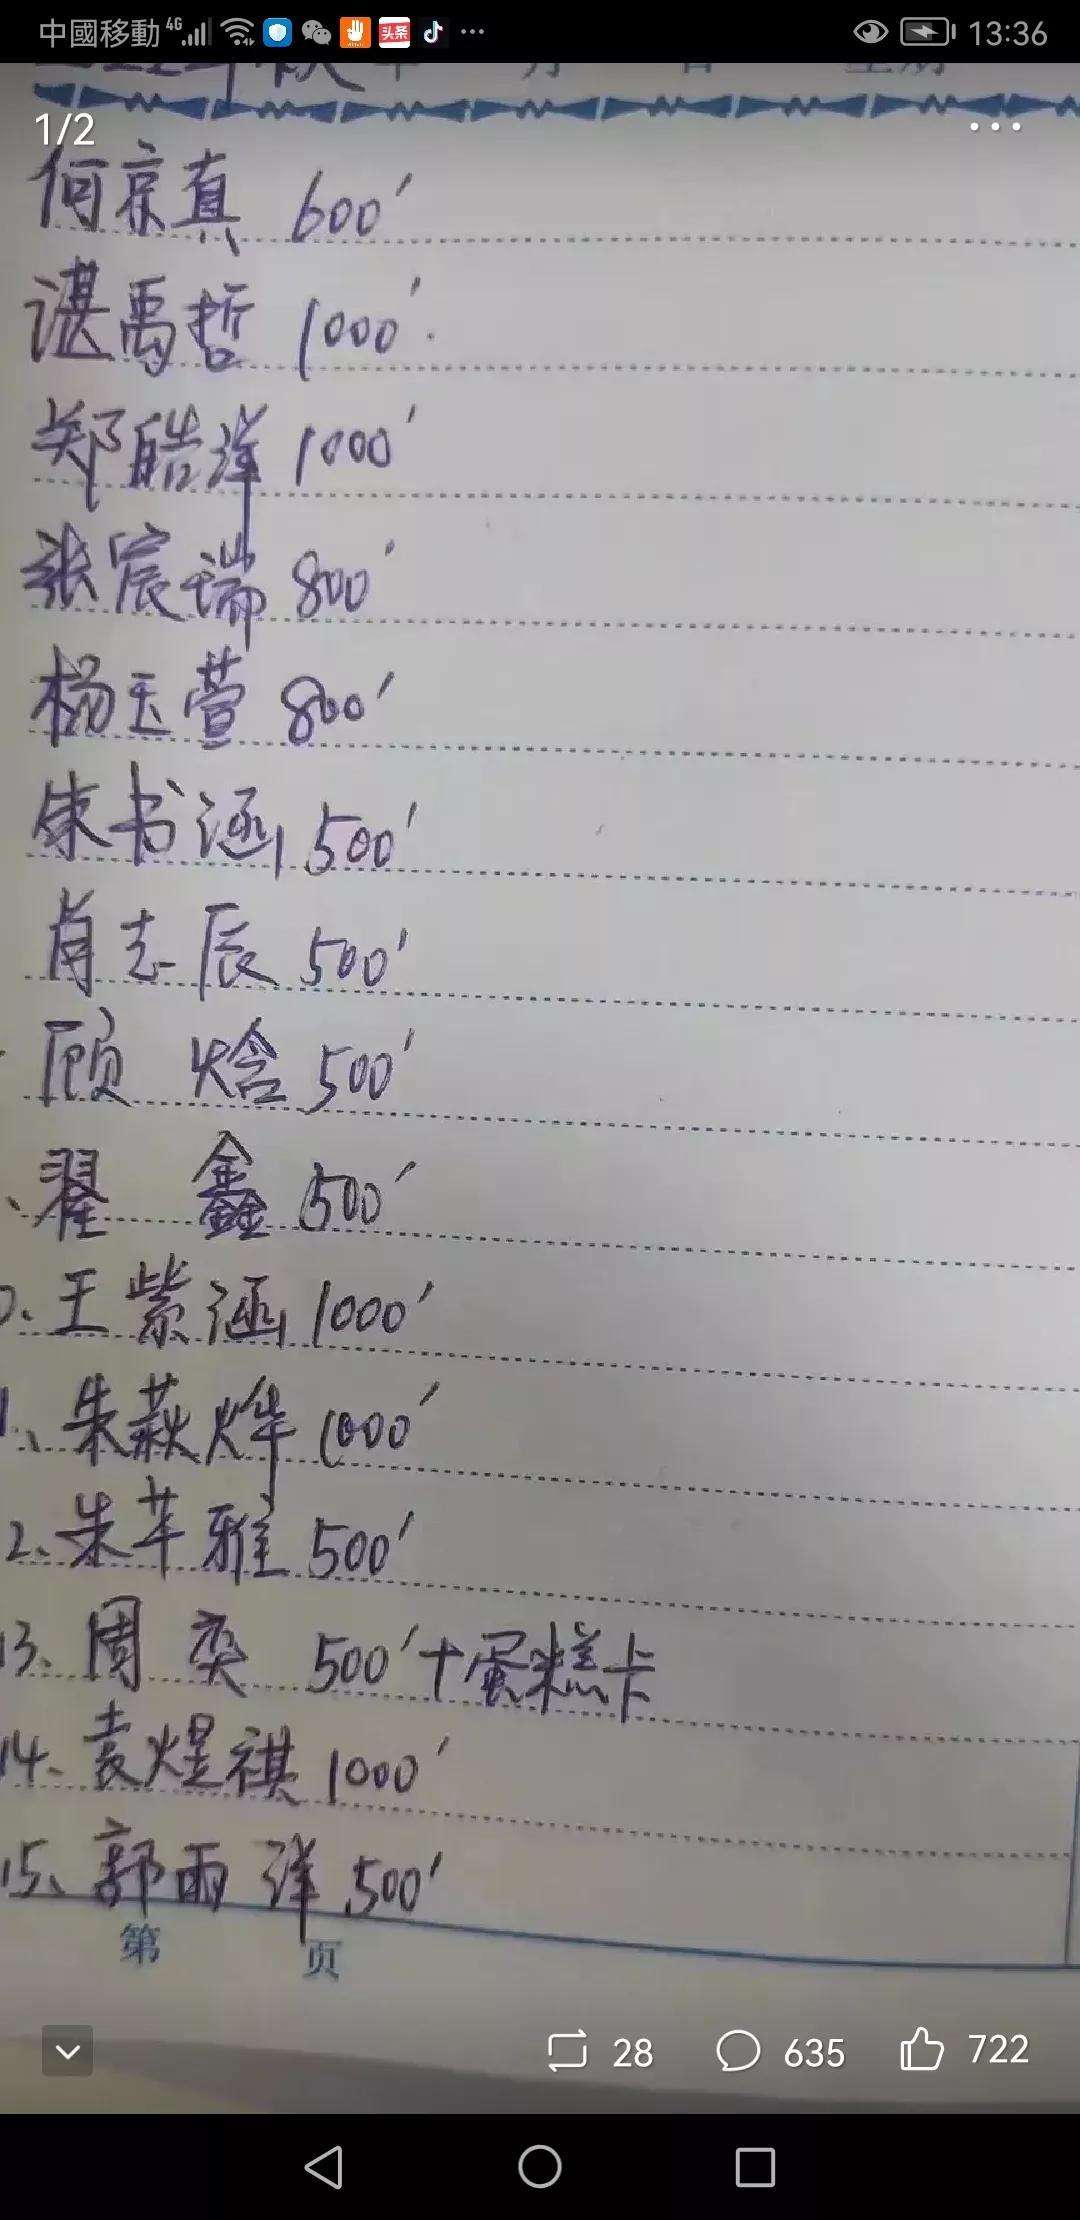 中國移動 4G 头条 ... 13:36
年 月 日 星期
1/2 ...
何京真 600'
谌禹哲 1000'.
郑皓洋 1000'
张宸瑞 800'
杨玉萱 800'
朱书涵 500'
肖志辰 500'
顾 焓 500'
、翟 鑫 500'
、王紫涵 1000'
1、朱菻烨 1000'
2、朱芊雅 500'
13、周奕 500'+蛋糕卡
14、袁煜祺 1000'
15、郭雨洋 500'
第 页
28 635 722